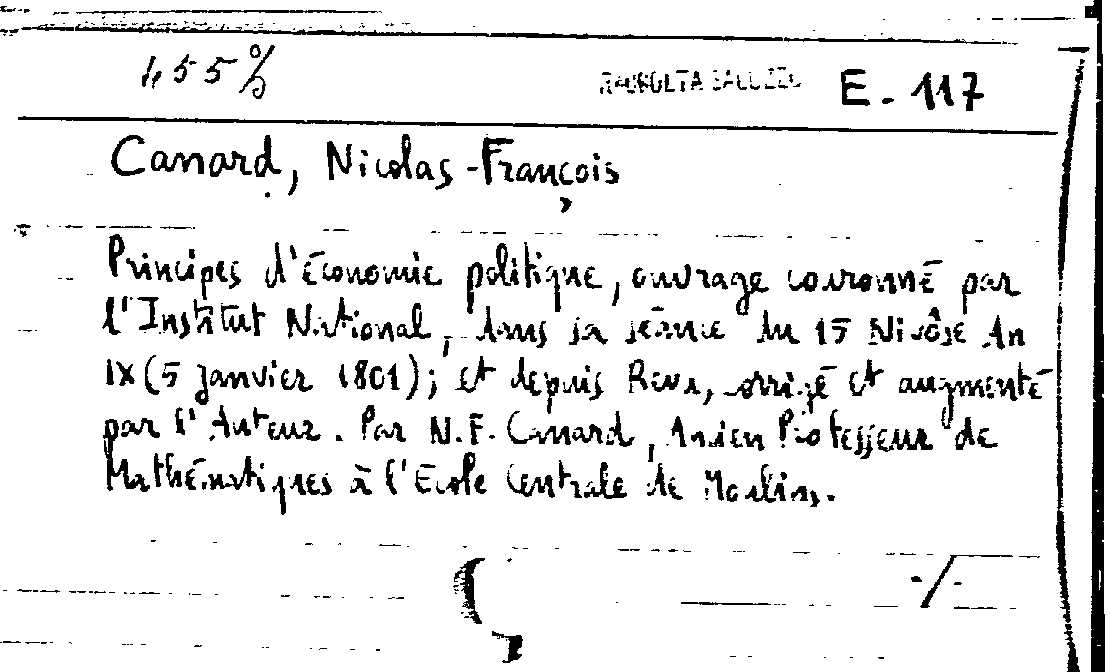 455%
RACCOLTA SALUZZO E. 117
Canard, Nicolas-François
Principes d'Économie politique, ouvrage couronné par
l'Institut National, dans sa séance du 15 Nivôse An
IX (5 janvier 1801); et depuis Revu, corrigé et augmenté
par l'Auteur. Par N.F. Canard, Ancien Professeur de
Mathématiques à l'École Centrale de Moulins.
./.